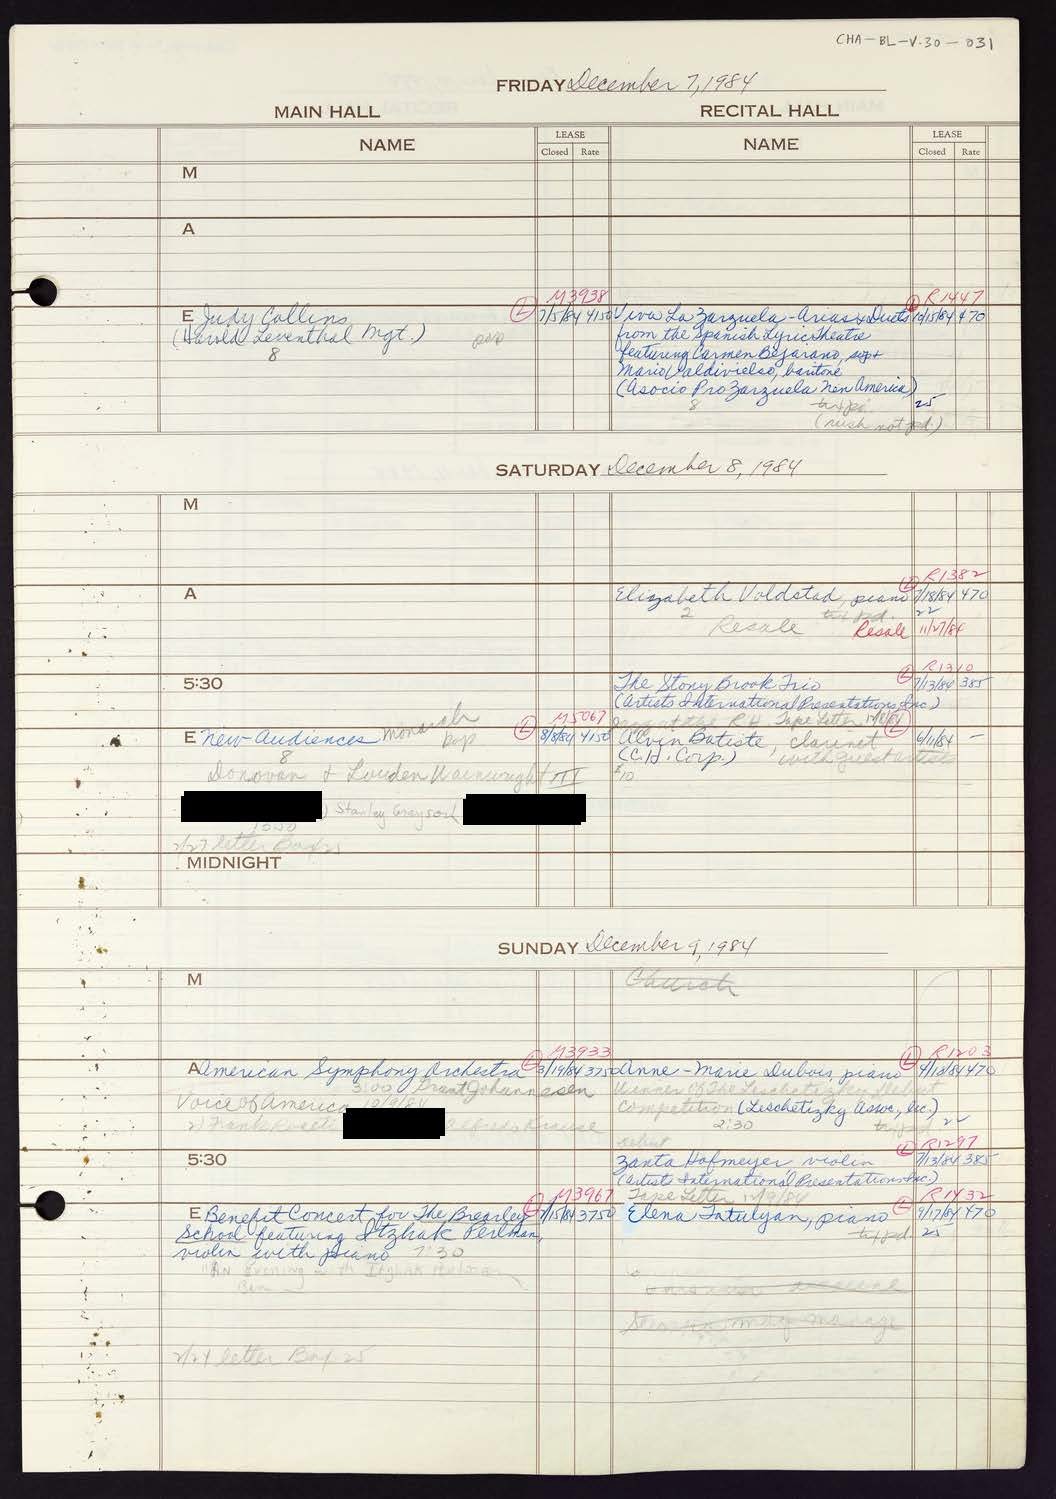 CHA-BL-V.30-031
FRIDAY December 7, 1984
MAIN HALL
RECITAL HALL
NAME
LEASE
Closed Rate
NAME
LEASE
Closed Rate
M
A
M3938
E Judy Collins
(Harold Leventhal Mgt.)
pop
8
L 7/5/84 4150
R1447
Viva La Zarzuela - Arias & Duets L 10/15/84 470
from the Spanish Lyric Theatre
featuring Carmen Bejarano, sop +
Mario Valdivielso, baritone
(Asocio Pro Zarzuela in America)
8
25
(rush not pd.)
SATURDAY December 8, 1984
M
A
R1382
Elizabeth Voldstad, piano L 7/18/84 470
2
22
Resale
Resale 11/27/84
5:30
R1310
The Stony Brook Trio L 7/13/84 385
(Artists International Presentations, Inc.)
Tape Letter
M5067
E New Audiences monarch pop L 8/8/84 4150
8
Donovan & Louden Wainwright III
Stanley Grayson
letter Box
L
Alvin Batiste, clarinet 6/11/84 -
(C.H. Corp.) with guest artists
$10
MIDNIGHT
SUNDAY December 9, 1984
M
Church
M3933
A American Symphony Orchestra L 3/19/84 3750
3:00 Grant Johannesen
Voice of America 10/9/84
R1203
Anne-Marie Dubois, piano L 4/10/84 470
Winner of The Leschetizky Debut
Competition (Leschetizky Assoc, Inc.)
2:30
22
5:30
R1297
Zanta Hofmeyer violin L 7/13/84 385
(Artists International Presentations Inc.)
Tape Letter 12/9/84
M3967
E Benefit Concert for The Brearley L 7/15/84 3750
School featuring Itzhak Perlman,
violin with piano 7:30
"An evening with Itzhak Perlman
R1432
Elena Tatulyan, piano L 9/17/84 470
25
2/24 letter Box 25